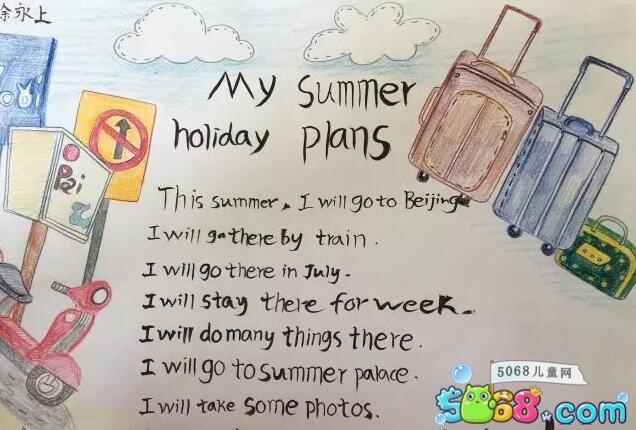 徐永上
My summer
holiday plans
This summer, I will go to Beijing
I will go there by train.
I will go there in July.
I will stay there for week.
I will do many things there.
I will go to summer palace.
I will take some photos.
5068儿童网
5068.com